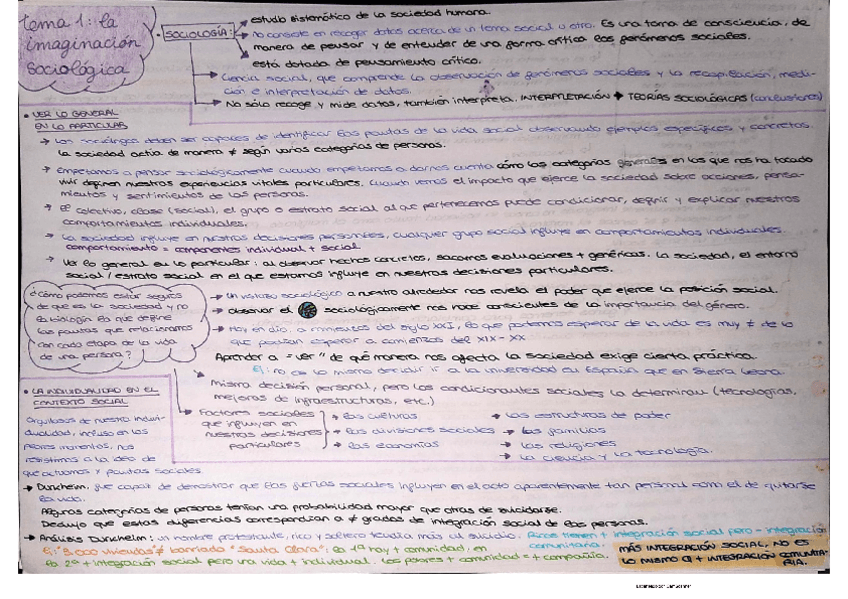 tema 1: la
imaginación
sociológica
SOCIOLOGÍA:
estudio sistemático de la sociedad humana.
no consiste en recoger datos acerca de un tema social u otro. Es una toma de consciencia, de
manera de pensar y de entender de una forma crítica los fenómenos sociales.
está dotada de pensamiento crítico.
Ciencia social, que comprende la observación de fenómenos sociales y la recopilación, medi-
ción e interpretación de datos.
No sólo recoge y mide datos, también interpreta. INTERPRETACIÓN → TEORÍAS SOCIOLÓGICAS (conclusiones)
• VER LO GENERAL
EN LO PARTICULAR
→ Los sociólogos deben ser capaces de identificar las pautas de la vida social observando ejemplos específicos y concretos.
La sociedad actúa de manera ≠ según varias categorías de personas.
→ Empezamos a pensar sociológicamente cuando empezamos a darnos cuenta cómo las categorías generales en las que nos ha tocado
vivir definen nuestras experiencias vitales particulares. Cuando vemos el impacto que ejerce la sociedad sobre acciones, pensa-
mientos y sentimientos de las personas.
→ El colectivo, clase (social), el grupo o estrato social al que pertenecemos puede condicionar, definir y explicar nuestros
comportamientos individuales.
→ La sociedad influye en nuestras decisiones personales, cualquier grupo social influye en comportamientos individuales.
comportamiento = componentes individual + social
→ Ver lo general en lo particular: al observar hechos concretos, sacamos evaluaciones + genéricas. La sociedad, el entorno
social / estrato social en el que estamos influye en nuestras decisiones particulares.
¿Cómo podemos estar seguros
de que es la sociedad y no
la biología la que define
las pautas que relacionamos
con cada etapa de la vida
de una persona?
→ Un vistazo sociológico a nuestro alrededor nos revela el poder que ejerce la posición social.
→ Observar el sociológicamente nos hace conscientes de la importancia del género.
→ Hoy en día, a comienzos del siglo XXI, lo que podemos esperar de la vida es muy ≠ de lo
que podían esperar a comienzos del XIX - XX
Aprender a "ver" de qué manera nos afecta la sociedad exige cierta práctica.
Ej: no es lo mismo decidir ir a la universidad en España que en Sierra Leona.
Misma decisión personal, pero los condicionantes sociales la determinan (tecnologías,
mejoras de infraestructuras, etc.)
• LA INDIVIDUALIDAD EN EL
CONTEXTO SOCIAL
Orgullosos de nuestra indivi-
dualidad, incluso en los
peores momentos, nos
resistimos a la idea de
que actuamos x pautas sociales.
Factores sociales
que influyen en
nuestras decisiones
particulares
→ las culturas
→ las divisiones sociales
→ las economías
→ las estructuras de poder
→ las familias
→ las religiones
→ la ciencia y la tecnología.
→ Durkheim, fue capaz de demostrar que las fuerzas sociales influyen en el acto aparentemente tan personal como el de quitarse
la vida.
Algunas categorías de personas tenían una probabilidad mayor que otras de suicidarse.
Dedujo que estas diferencias correspondían a ≠ grados de integración social de las personas.
→ Análisis Durkheim: un hombre protestante, rico y soltero tendía más al suicidio. Ricos tienen + integración social pero - integración
comunitaria.
Ej: "3.000 viviendas" ≠ barriada "Santa Clara": la 1ª hay + comunidad, en
la 2ª + integración social pero una vida + individual. Los pobres + comunidad = + compañía.
MÁS INTEGRACIÓN SOCIAL, NO ES
LO MISMO Q + INTEGRACIÓN COMUNITA-
RIA.